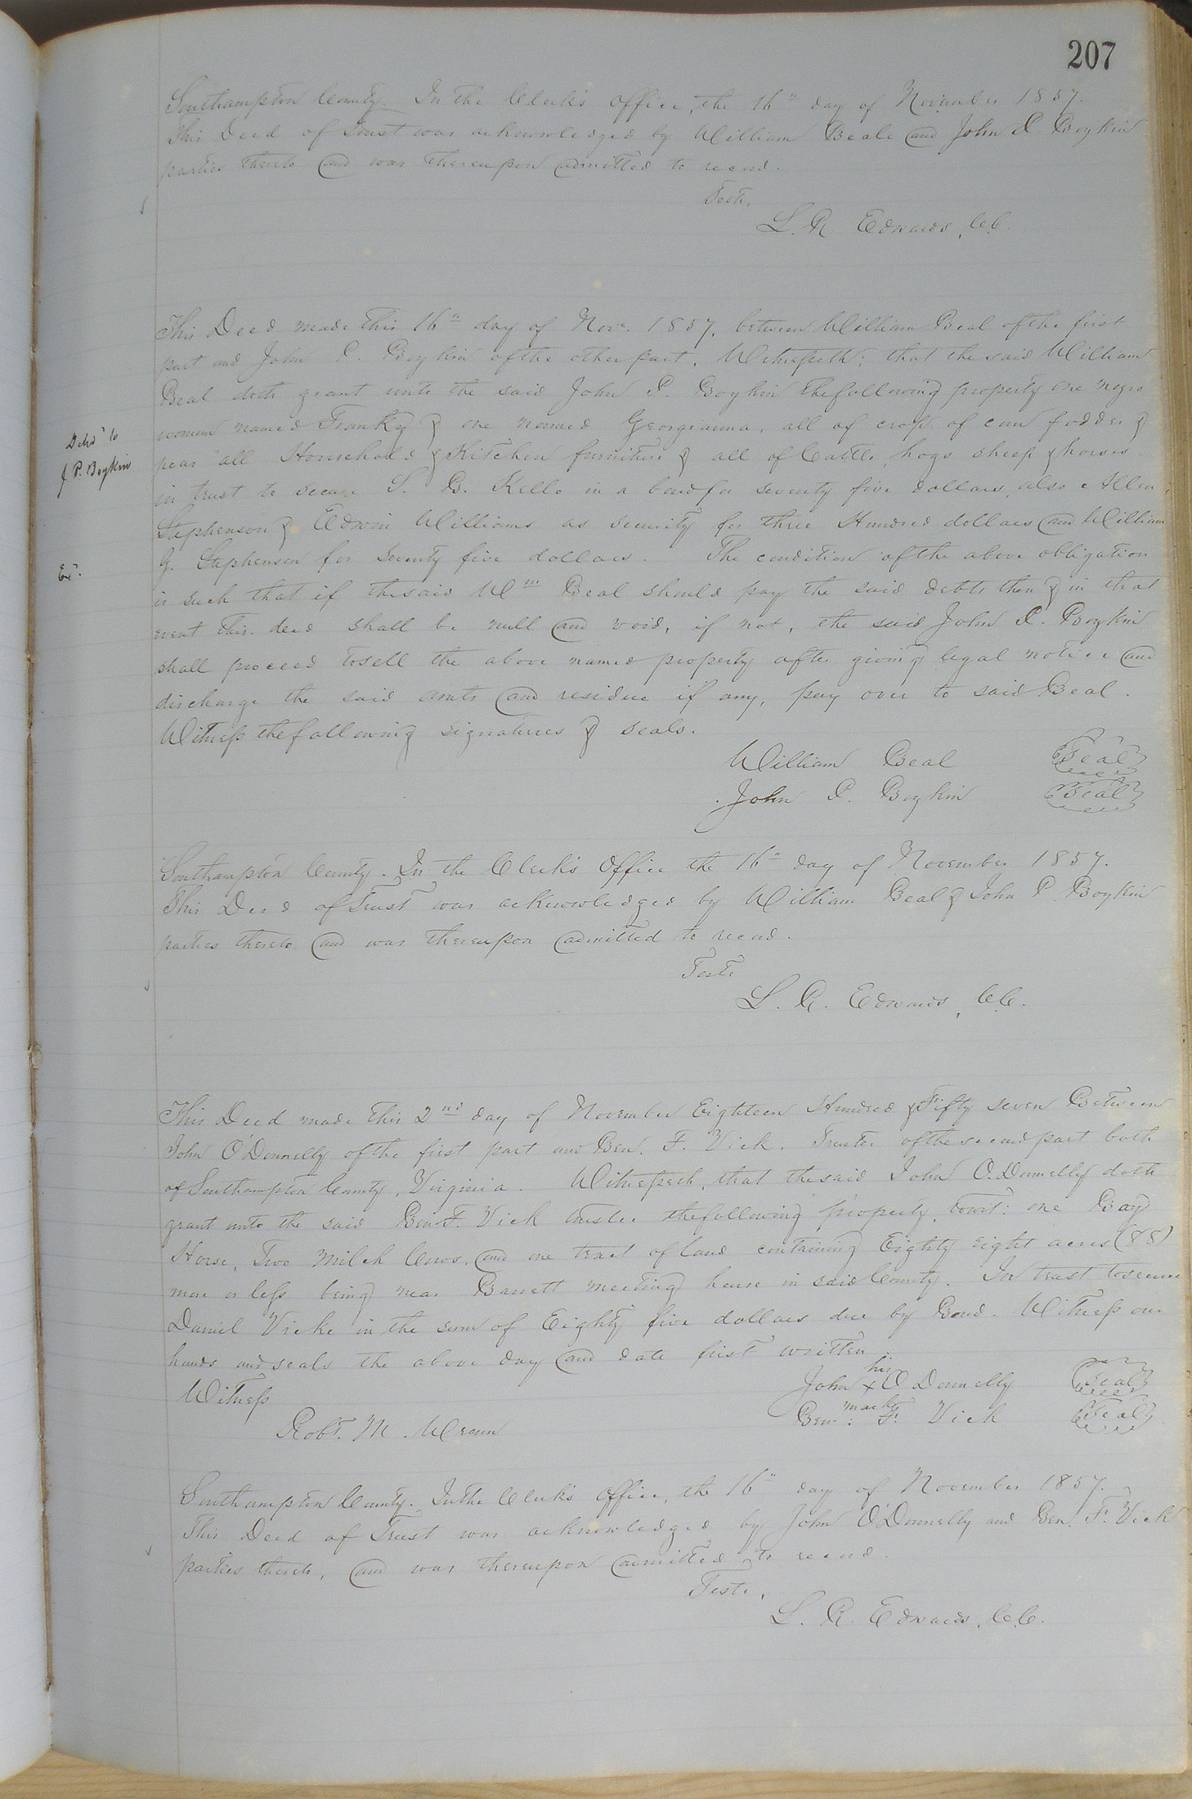 207
Southampton County. In the Clerk's office, the 16th day of November 1857.
This Deed of Trust was acknowledged by William Beale and John P. Boykin
parties thereto and was thereupon admitted to record.
Teste,
L. R. Edwards, C.C.
This Deed made this 16th day of Nov. 1857, between William Beal of the first
part and John P. Boykin of the other part, Witnesseth: that the said William
Beal doth grant unto the said John P. Boykin the following property one negro
woman named Franky & one named Georgeanna, all of crop of corn fodder &
peas all Household & Kitchen furniture & all of Cattle, hogs sheep & horses
in trust to secure S. B. Kello in a bond for seventy five dollars, also Allen
Stephenson & Edwin Williams as security for three Hundred dollars and William
G. Stephenson for seventy five dollars. The condition of the above obligation
is such that if the said Wm Beal should pay the said debts then & in that
event this deed shall be null and void, if not, the said John P. Boykin
shall proceed to sell the above named property after giving legal notice and
discharge the said amts and residue if any, pay over to said Beal.
Witness the following signatures & seals.
Deld to
J. P. Boykin
Ex.
William Beal Seal
John P. Boykin Seal
Southampton County. In the Clerk's Office the 16th day of November 1857.
This Deed of Trust was acknowledged by William Beal & John P. Boykin
parties thereto and was thereupon admitted to record.
Teste
L. R. Edwards, C.C.
This Deed made this 2nd day of November Eighteen Hundred & Fifty seven Between
John O'Donnelly of the first part and Ben. F. Vick. Trustee of the second part both
of Southampton County, Virginia. Witnesseth, that the said John O.Donnelly doth
grant unto the said Ben F. Vick trustee the following property, towit: one Bay
Horse, Two milch Cows, and one tract of land containing Eighty eight acres (88)
more or less being near Barrett meeting house in said County. In trust to secure
Daniel Vicke in the sum of Eighty five dollars due by Bond. Witness our
hands and seals the above day and date first written.
Witness
John his x mark O Donnelly Seal
Ben: F. Vick Seal
Robt. M. Wrenn
Southampton County. In the Clerk's Office, the 16th day of November 1857.
This Deed of Trust was acknowledged by John O'Donnelly and Ben. F. Vick
parties thereto, and was thereupon admitted to record
Teste,
L. R. Edwards, C.C.